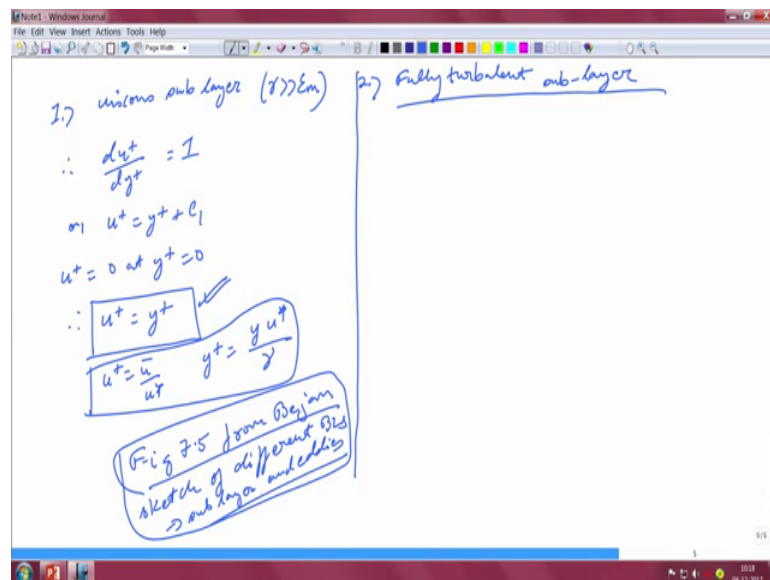 Note1 - Windows Journal
File Edit View Insert Actions Tools Help
Page Width
1.) viscous sub layer (γ>>εm)
∴ du+/dy+ = 1
or, u+ = y+ + C1
u+ = 0 at y+ = 0
∴ u+ = y+
u+ = ū/u* y+ = y u*/γ
Fig 7.5 from Bejan
sketch of different BLs
⇒ sub layer and eddies
2.) Fully turbulent sub-layer
6/6
5
10:18